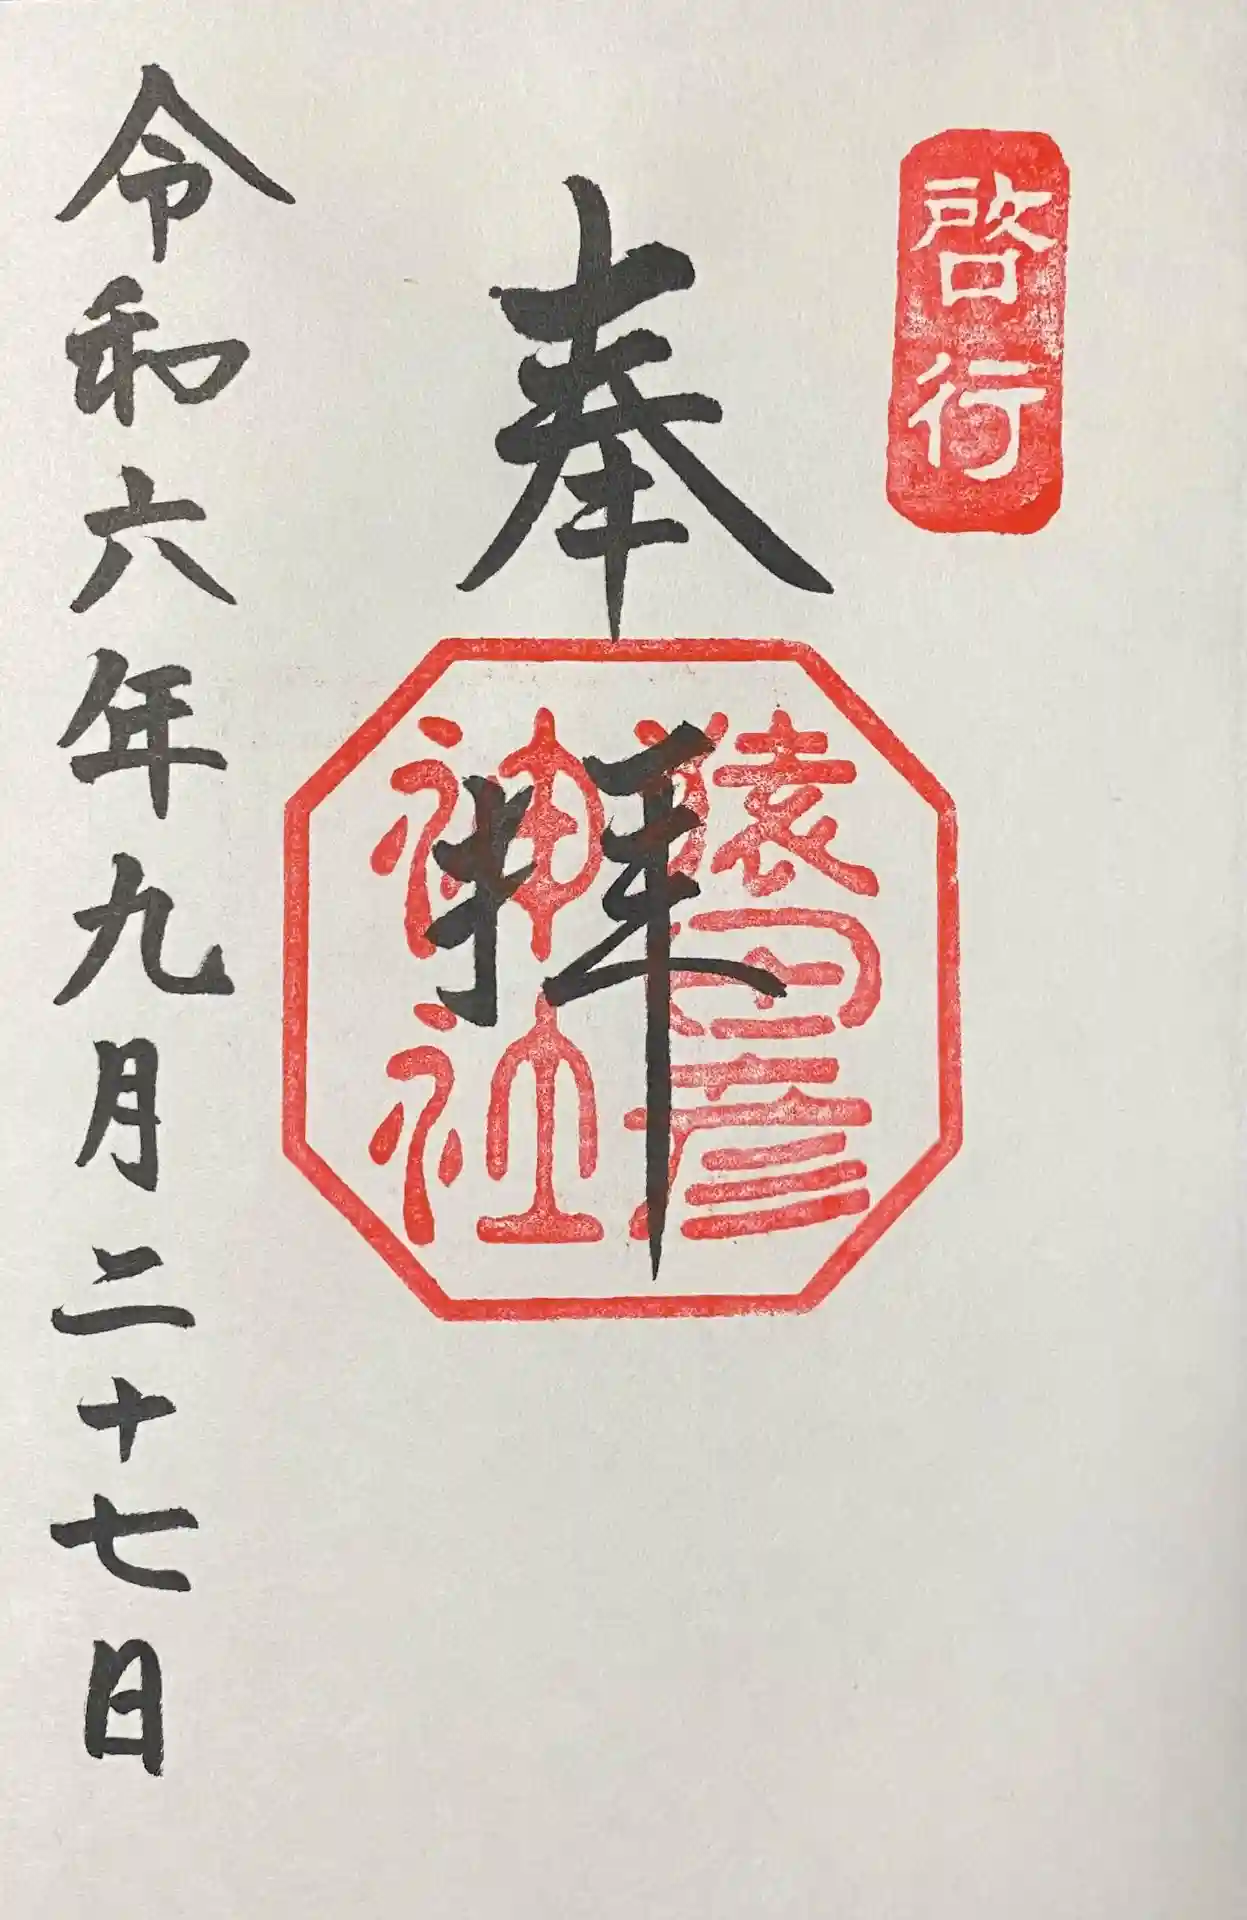 啓行
奉拝
猿田彦
神社
令和六年九月二十七日